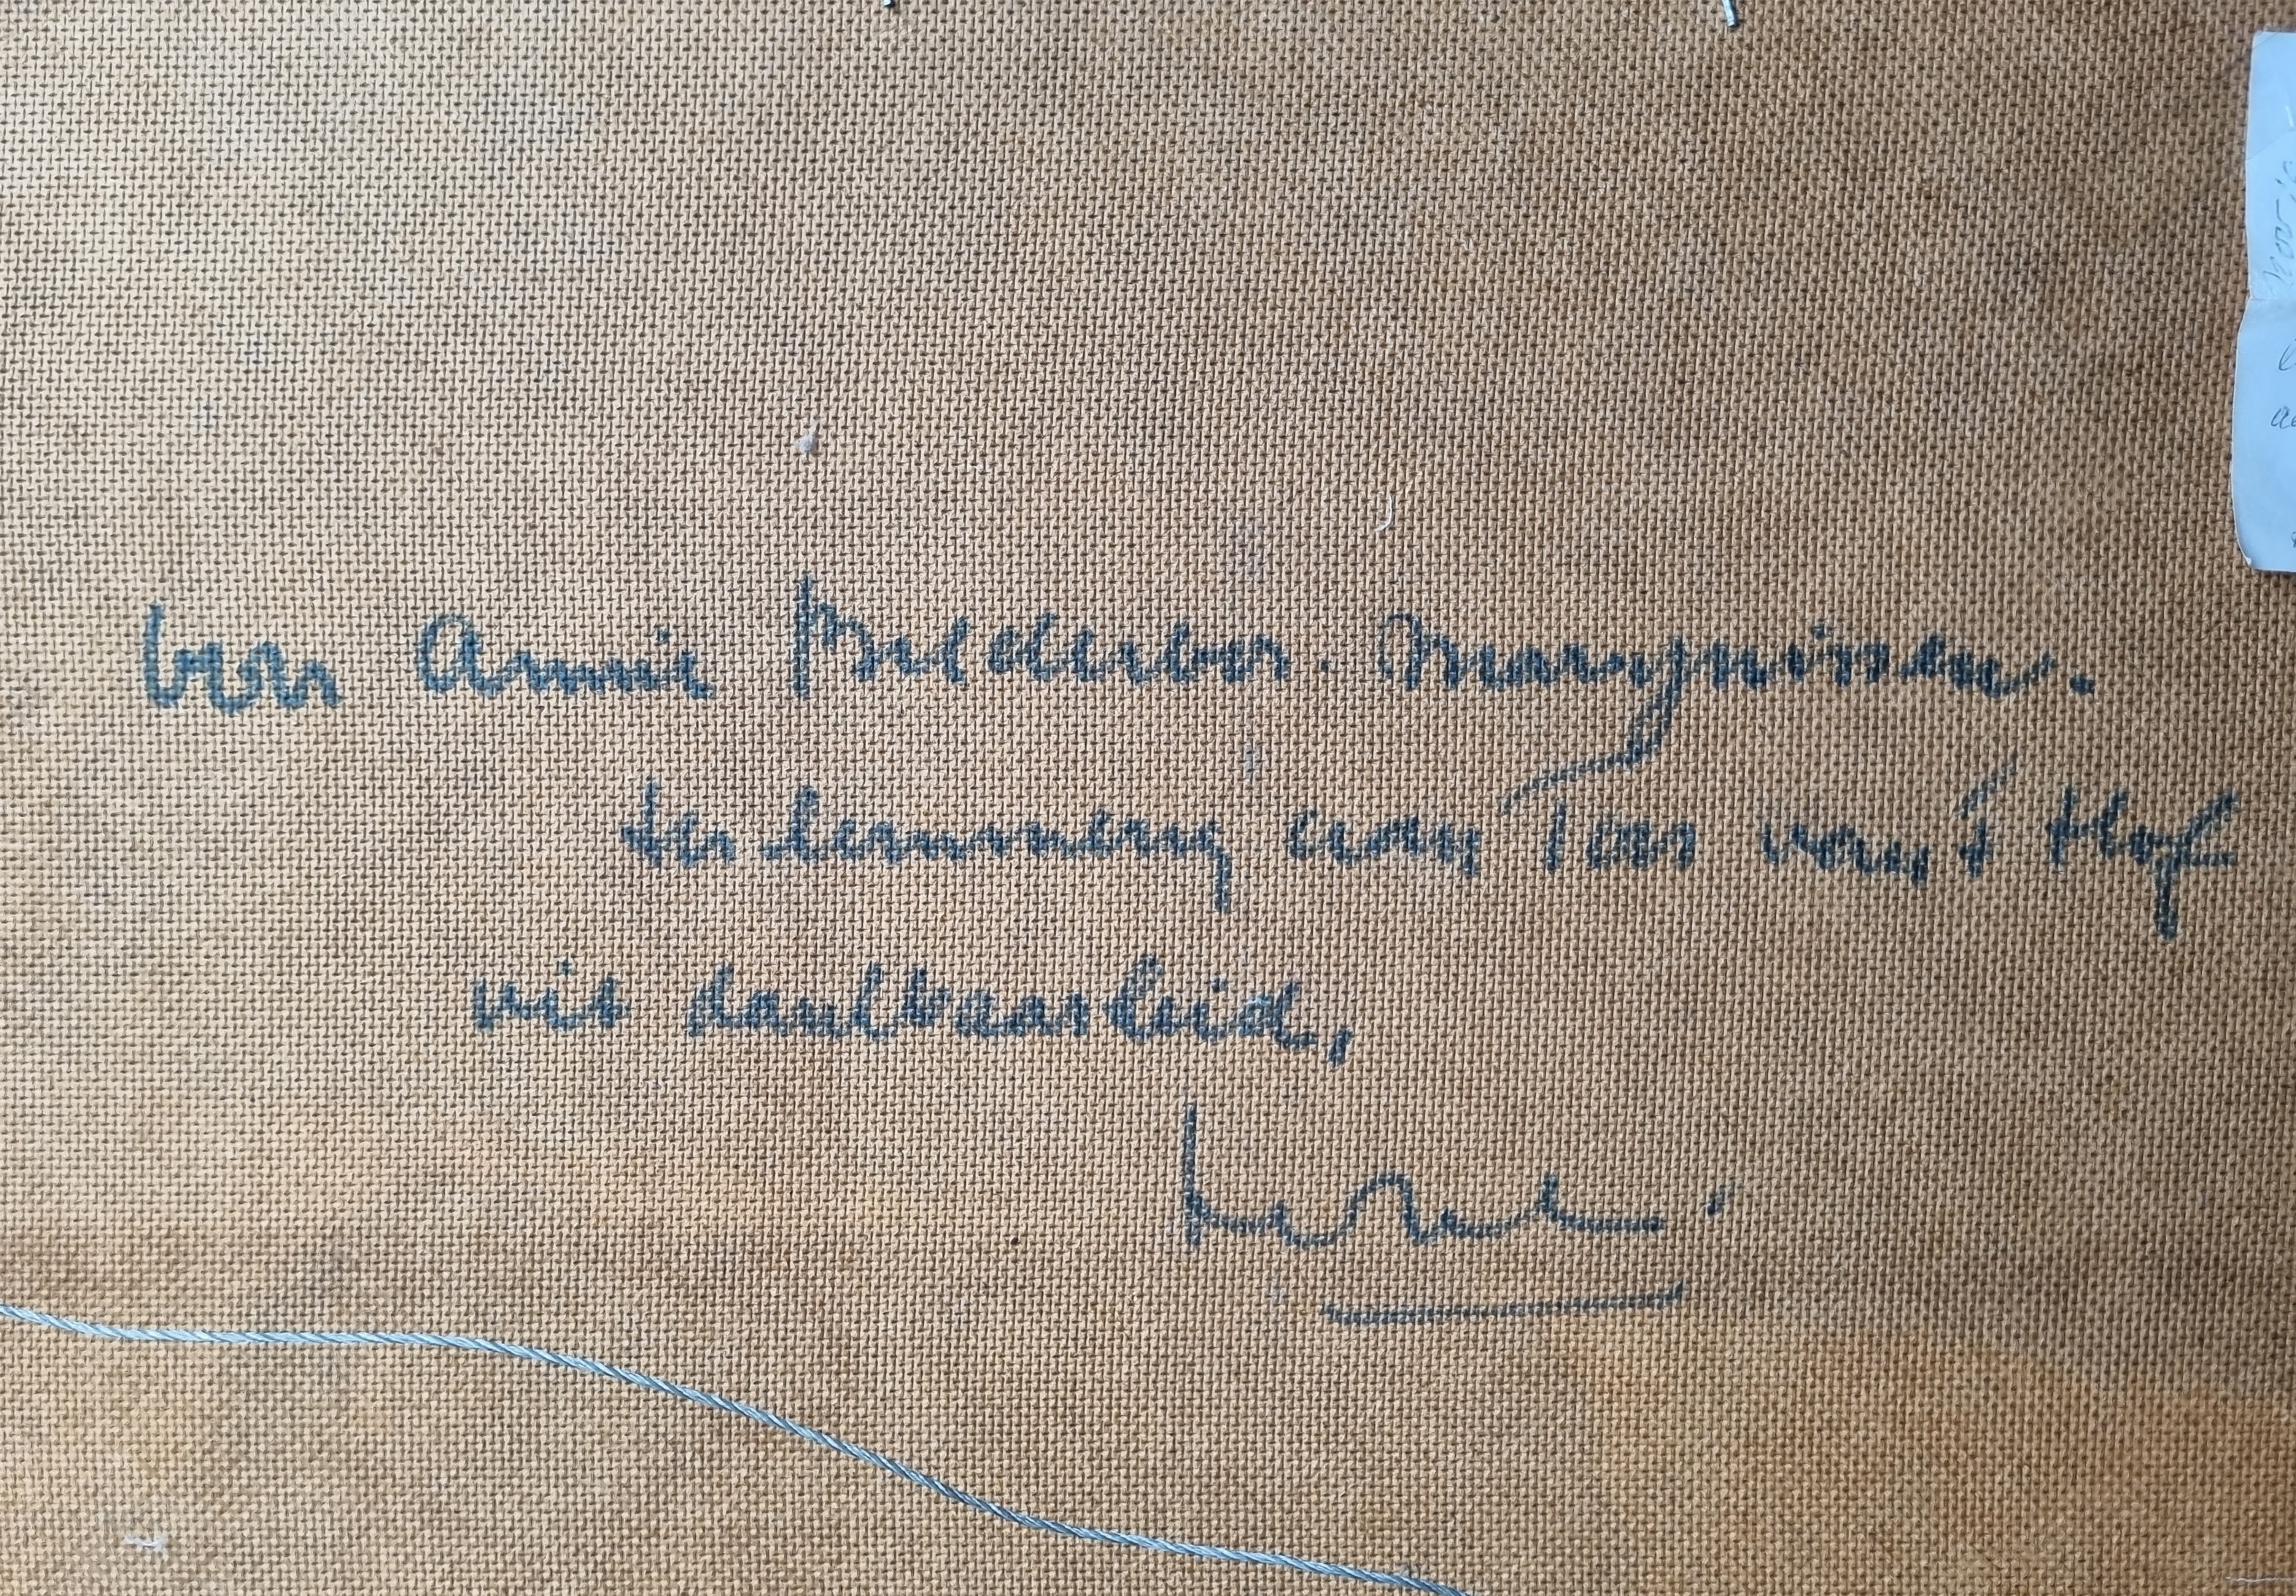 voor Annie Brederoo. Marijnissen.
ter herinnering aan Toos van 't Hof
uit dankbaarheid,